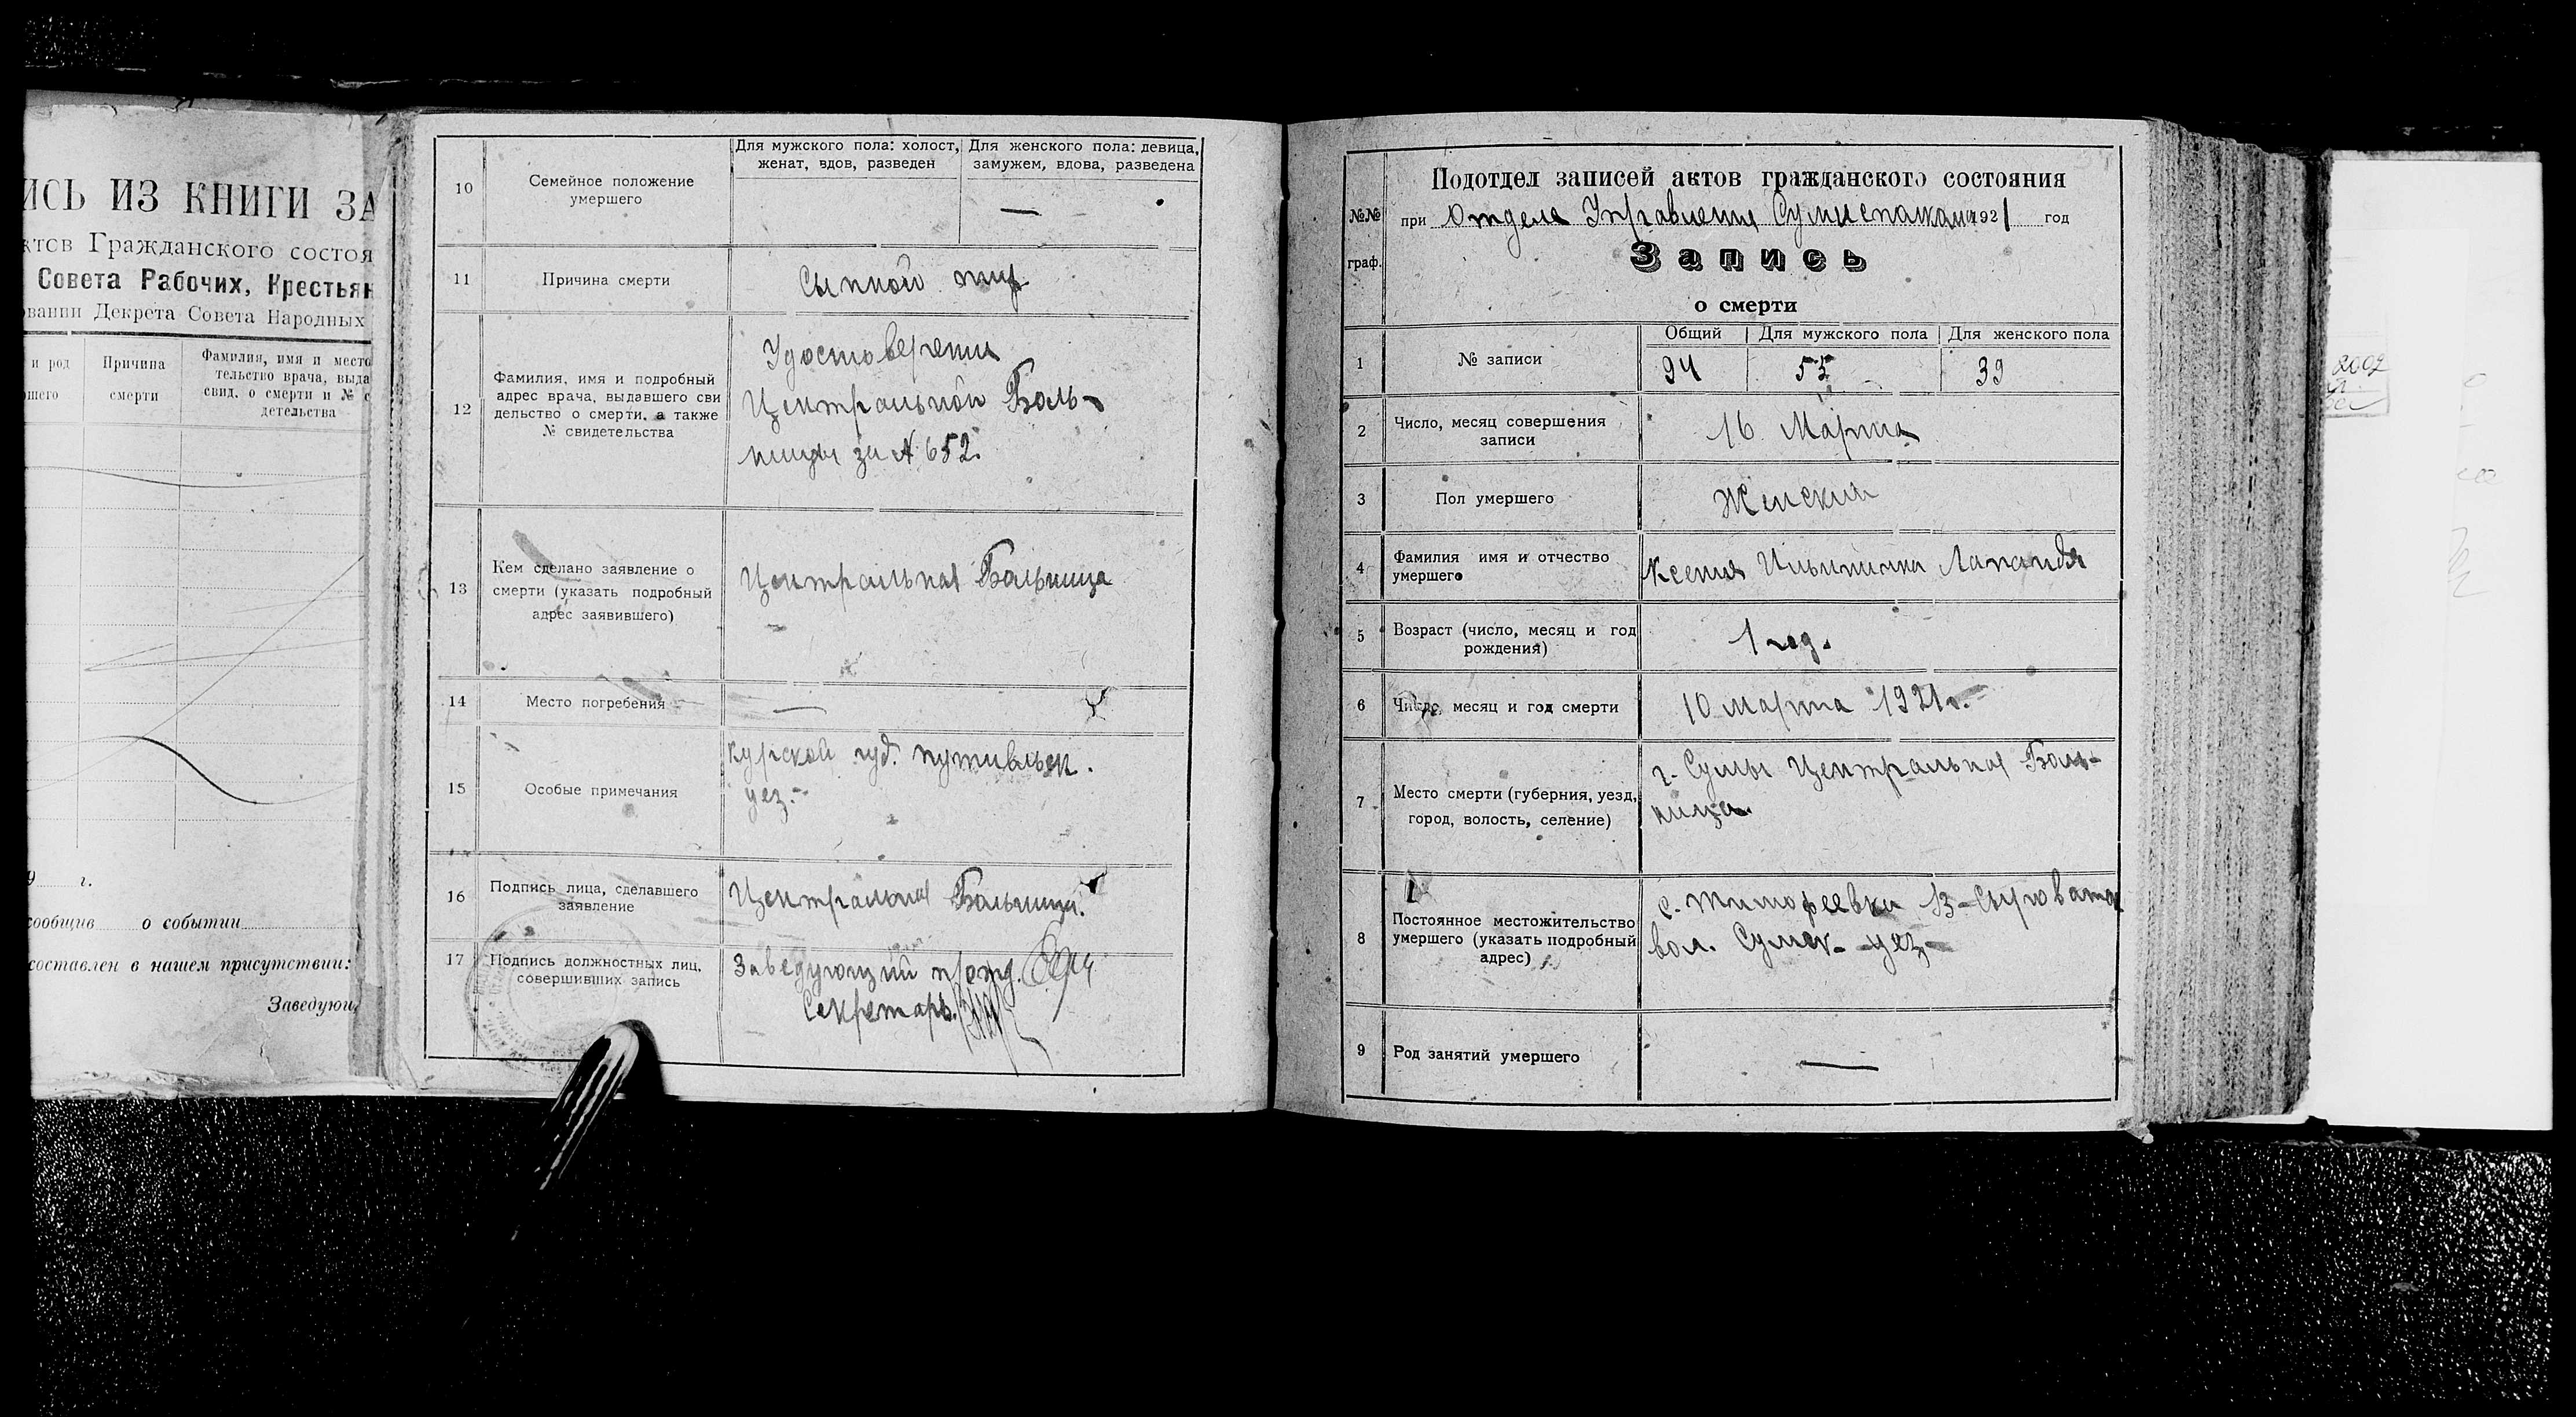 ИСЬ ИЗ КНИГИ ЗА
ктов Гражданского состоя
Совета Рабочих, Крестьян
овании Декрета Совета Народных
и род
шего
Причина
смерти
Фамилия, имя и место
тельство врача, выда
свид. о смерти и № с
детельства
9 г.
сообщив о событии
составлен в нашем присутствии:
Заведующ
10
Семейное положение
умершего
Для мужского пола: холост,
женат, вдов, разведен
Для женского пола: девица,
замужем, вдова, разведена
—
11
Причина смерти
Сыпной тиф
12
Фамилия, имя и подробный
адрес врача, выдавшего сви
дельство о смерти, а также
№ свидетельства
Удостоверения
Центральной Боль-
ницы за № 652.
13
Кем сделано заявление о
смерти (указать подробный
адрес заявившего)
Центральная Больница
14
Место погребения
—
15
Особые примечания
Курской губ. Путивльск.
уез.-
16
Подпись лица, сделавшего
заявление
Центральная Больница.
17
Подпись должностных лиц,
совершивших запись
Заведующий п/отд.
Секретарь
№№
граф.
Подотдел записей актов гражданского состояния
при Отделе Управления 1921 год
Запись
о смерти
1
№ записи
Общий
Для мужского пола
Для женского пола
94
55
39
2
Число, месяц совершения
записи
16 Марта
3
Пол умершего
Женский
4
Фамилия имя и отчество
умершего
Ксения Ильинична
5
Возраст (число, месяц и год
рождения)
1 год.
6
Число, месяц и год смерти
10 марта 1921 г.
7
Место смерти (губерния, уезд,
город, волость, селение)
г. Сумы Центральная Боль-
ница.
8
Постоянное местожительство
умершего (указать подробный
адрес)
с. Тимофеевки В-Сыроват
вол. Сумск- уез-
9
Род занятий умершего
—
2002